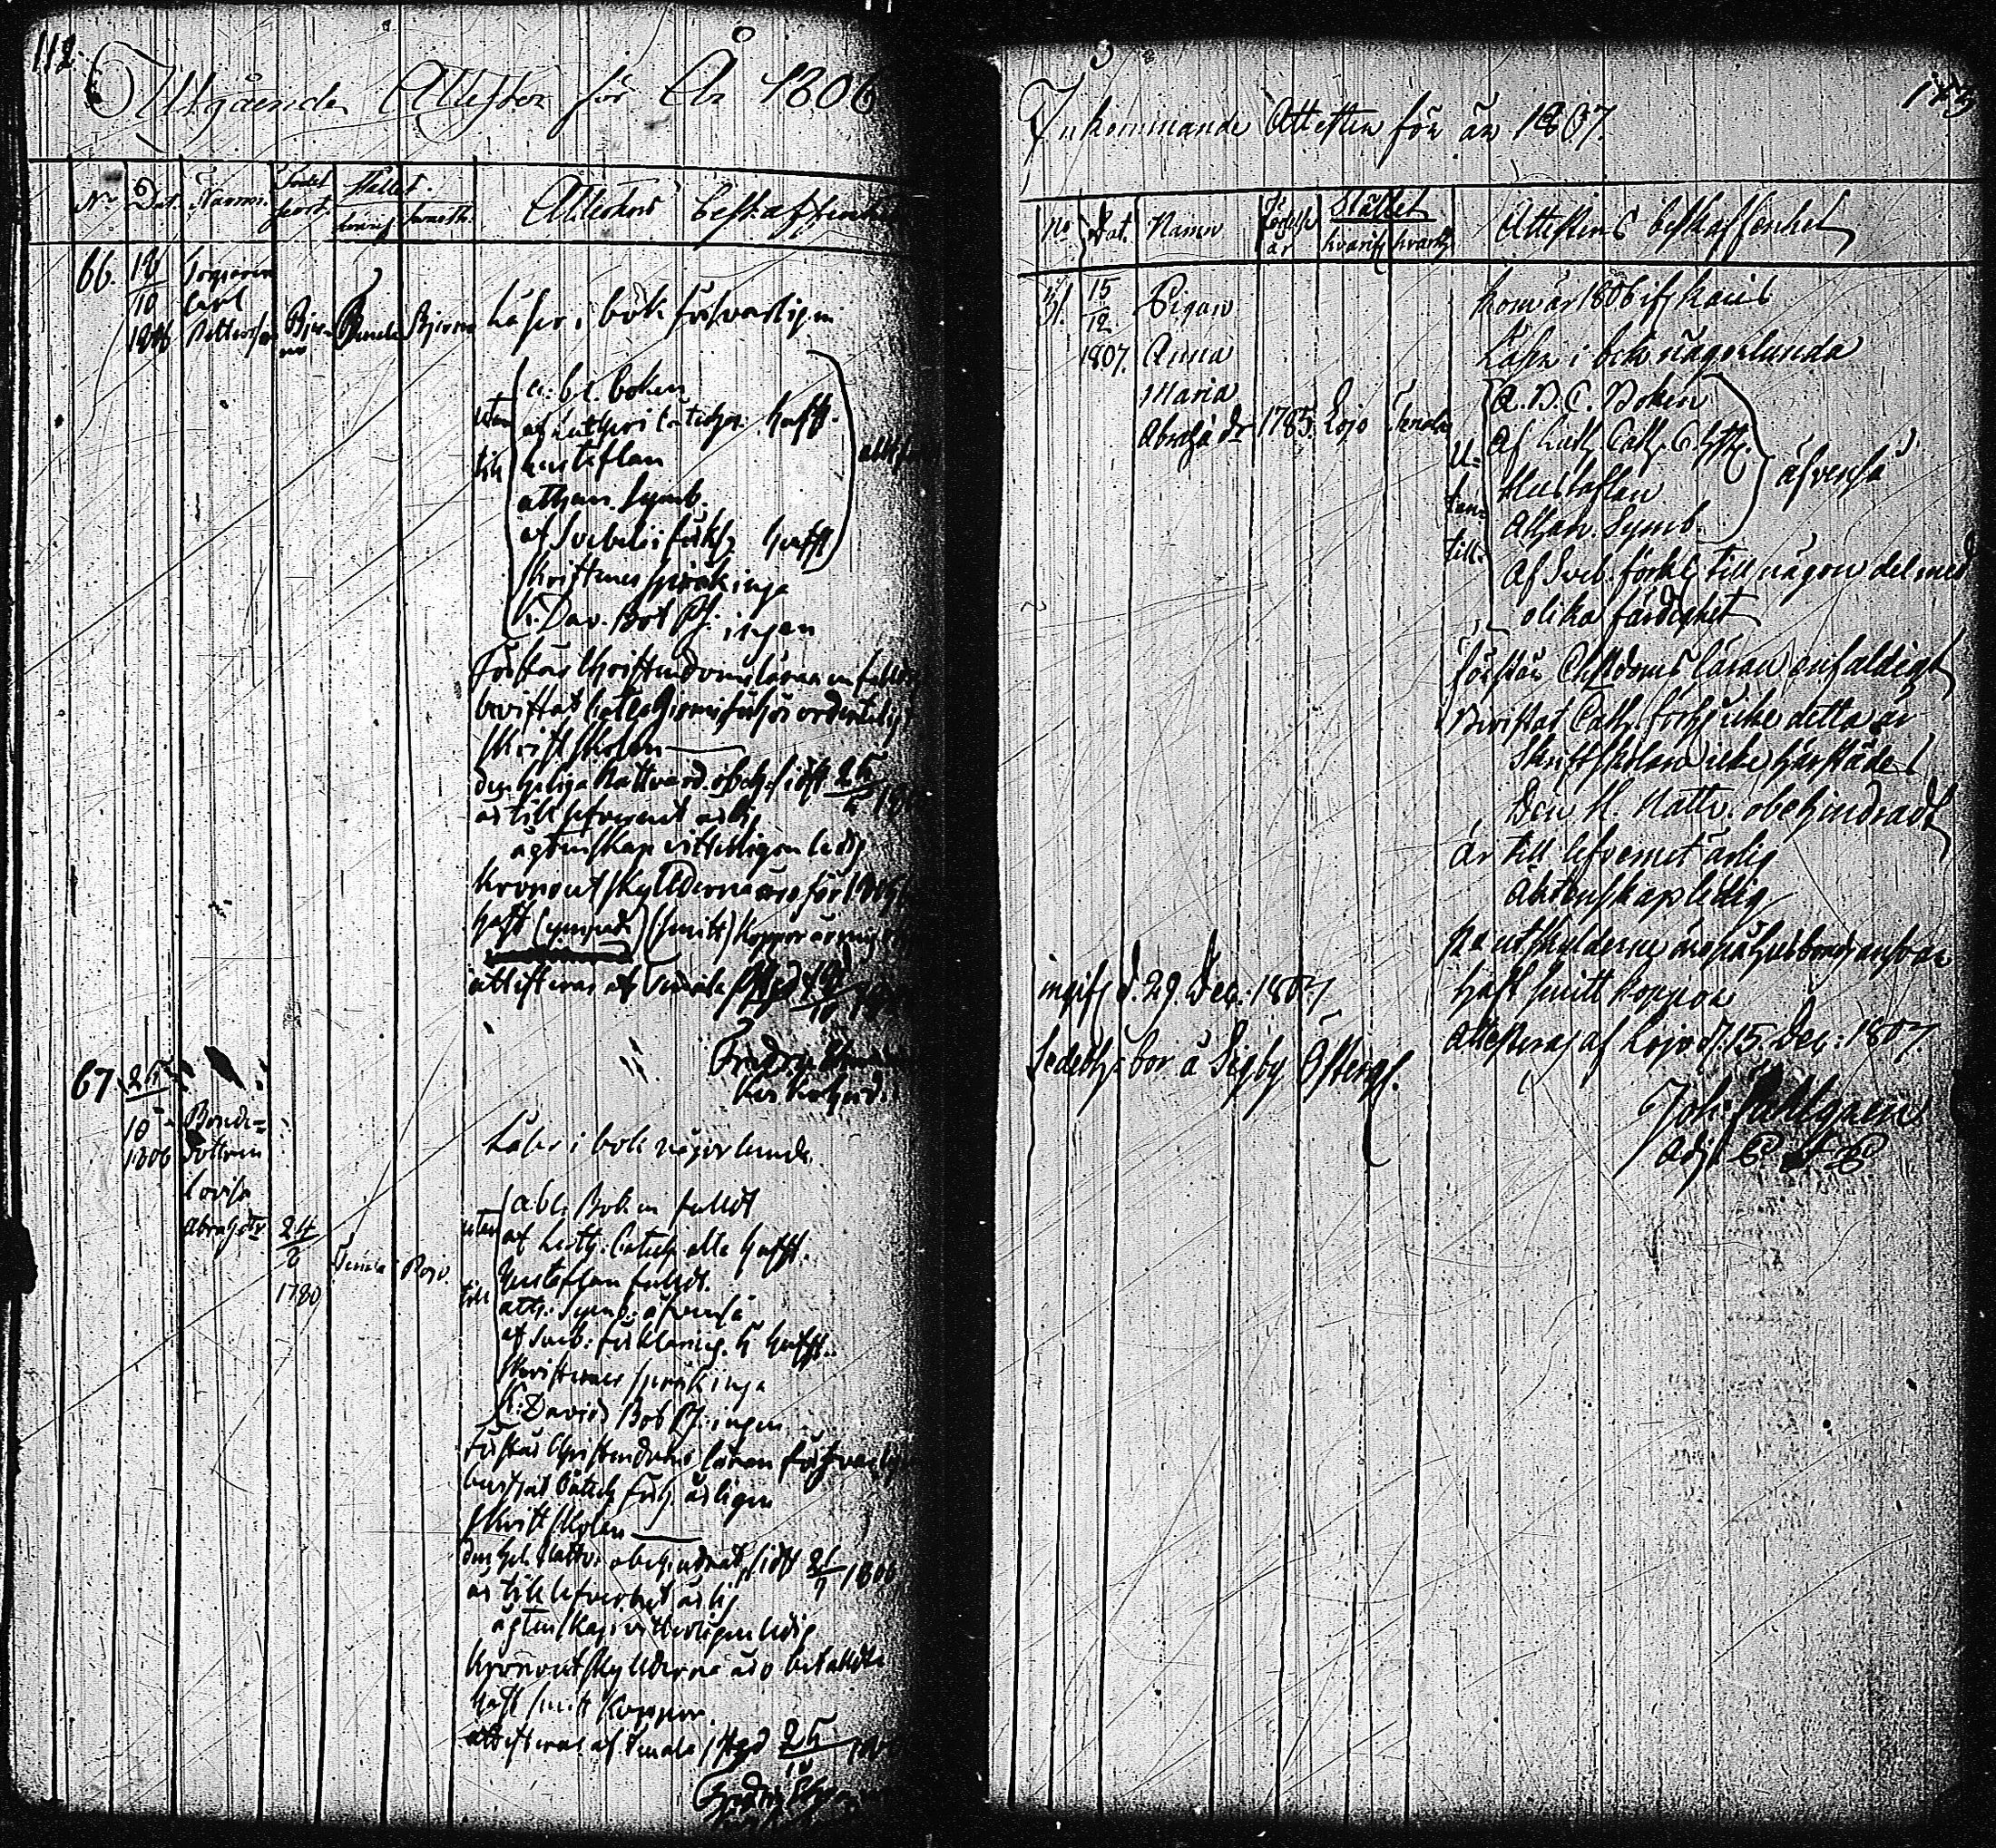 112.
Utgående Attester för År 1806
No Dat. Namn. Stället.
hvarif hvarth.
Attestens beskaffenhet
66. 18
10 Carl
1806 Pettersson Bjer-
no Tenala Bjerno
Läser i bok försvarligen
utan
till
a. b. c. boken
af Lutheri Catches. haffs.
hustaflan
athan. Symb.
af Svebelii förkl. haffs
skriftenes språk inga
K. Dav. Bot Ps. ingen
Förstår Christendomsläran
bevistat Catechismiförhör ordentelig
Skriftskolan
den heliga Nattvard. obeh. sidst 25
är till lefvernet ärlig
ägtenskap vitterligen ledig
Kronoutskylderne äro för
haft (ympade) (smitt) Koppor
attesteras af Tenala Pstgd 18
10
67. 25
10
1806
Bonde=
dottren
Lovisa
Abrahsdr
24
8
1780
Tenala Pojo
Läser i bok någorlunda
utan
till
abc. Boken fulldt
af Luth. Catech. alla haffs.
hustaflan fulldt.
ath. Symb. äfvenså
af Sveb. förklaring. 4 haffs.
Skriftenes språk inga
K. Davids Bot Ps. ingen
Förstår Christendoms läran försvarlig
bevistat Catech. förh. årligen
Skriftskolan
den hel. Nattv. obehindrat sidst 21
7 1806
är till lefvernet ärlig
ägtenskap vitterligen ledig
Kronoutskylderne äro betalda
haft smitt Koppor.
attesteras af Tenala Pstgd 25
10
Inkommande Attester för år 1807.
No Dat. Namn Födelse
år Stället
hvarifr hvarth
Attestens beskaffenhet
31. 15
12
1807.
Pigan
Anna
Maria
Abrahs dr 1785. Lojo Tenala
Kom år 1806 ifr Karis
Läser i bok någorlunda
U=
tan=
till=
A. B. C. Boken
Af Luth. Cath.
Hustaflan
Athan. Symb.
äfvenså
Af Sveb. förkl. till någon del med
olika färdighet
förstår Chstdoms läran enfaldigt
Bevistat Cath. förhör icke detta år
Skriftskolan icke härstädes
Den H. Nattv. obehindradt
är till lefvernet ärlig
Äktenskap ledig
haft smitt koppor
Attesteras af Lojo d. 15 Dec: 1807.
ingifv d. 29 Dec: 1807
bor å Sigby
Joh:
Adj.